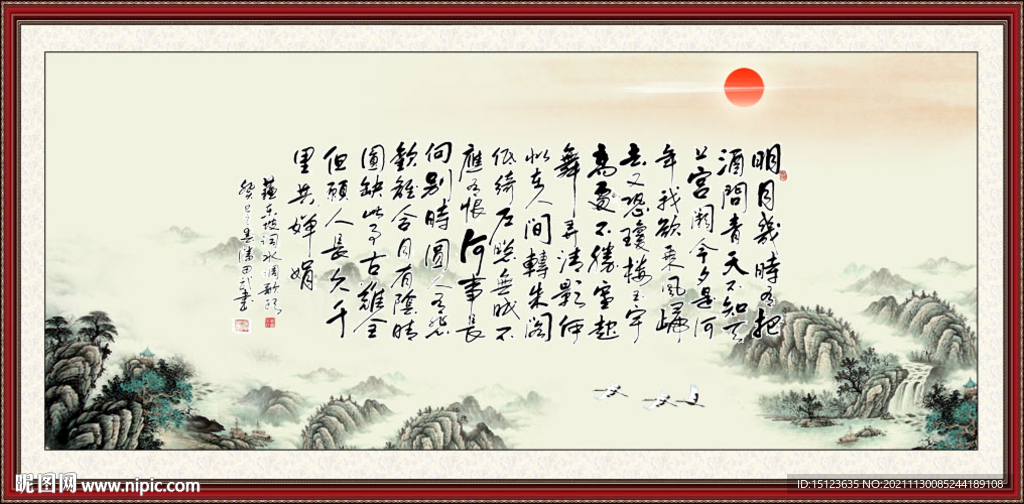 明月幾時有把
酒問青天不知天
上宮闕今夕是何
年我欲乘風歸
去又恐瓊樓玉宇
高處不勝寒起
舞弄清影何
似在人間轉朱閣
低綺户照無眠不
應有恨何事長
向别時圓人有悲
歡離合月有陰晴
圓缺此事古難全
但願人長久千
里共嬋娟
蘇東坡詞水調歌頭
昵图网 www.nipic.com
ID:15123635 NO:20211130085244189108